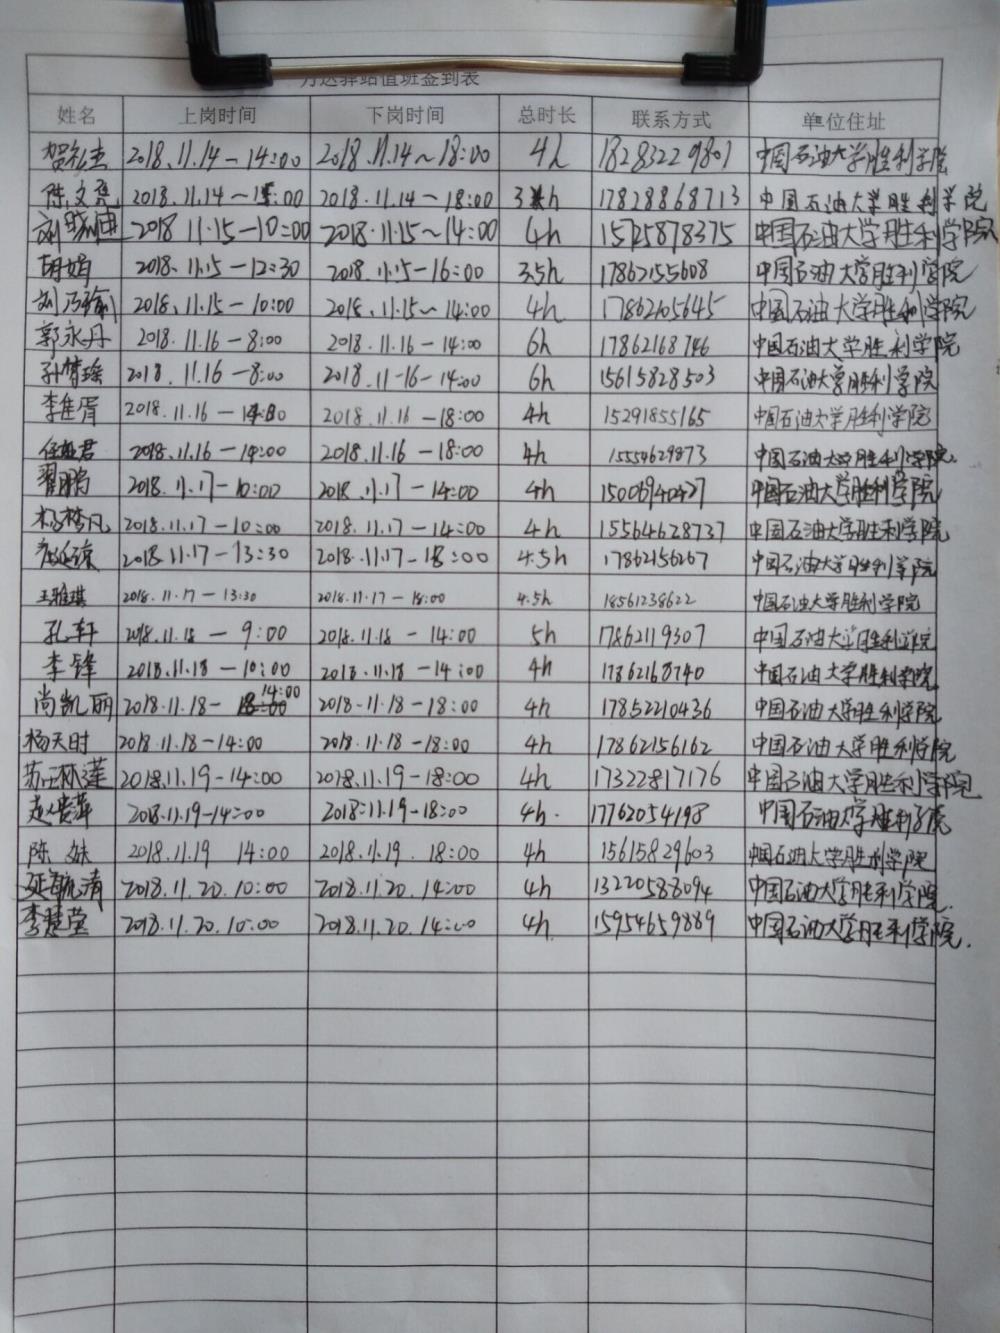 万达驿站值班签到表
姓名 上岗时间 下岗时间 总时长 联系方式 单位住址
2018.11.14-14:00 2018.11.14~18:00 4h 18283229801 中国石油大学胜利学院
陈文尧 2018.11.14~15:00 2018.11.14~18:00 3h 17828868713 中国石油大学胜利学院
2018 11.15-10:00 2018.11.15~14:00 4h 1525878375 中国石油大学胜利学院
胡娟 2018.11.15-12:30 2018.11.15-16:00 3.5h 17862155608 中国石油大学胜利学院
刘乃瑜 2018.11.15-10:00 2018.11.15~14:00 4h 17862105645 中国石油大学胜利学院
郭永丹 2018.11.16-8:00 2018.11.16-14:00 6h 17862168746 中国石油大学胜利学院
孙梦瑶 2018.11.16-8:00 2018.11-16-14:00 6h 15615828503 中国石油大学胜利学院
李佳胥 2018.11.16-14:00 2018.11.16-18:00 4h 15291855165 中国石油大学胜利学院
2018.11.16-14:00 2018.11.16-18:00 4h 15554629873 中国石油大学胜利学院.
翟鹏 2018.11.17-10:00 2018.11.17-14:00 4h 15006940427 中国石油大学胜利学院
杨梦凡 2018.11.17-10:00 2018.11.17-14:00 4h 15564628737 中国石油大学胜利学院
2018.11.17-13:30 2018.11.17-18:00 4.5h 17862156267 中国石油大学胜利学院
王雅琪 2018.11.17-13:30 2018.11.17-18:00 4.5h 18561238622 中国石油大学胜利学院
孔轩 2018.11.18-9:00 2018.11.18-14:00 5h 17862119307 中国石油大学胜利学院
李锋 2018.11.18-10:00 2018.11.18-14:00 4h 17862168740 中国石油大学胜利学院
尚凯丽 2018.11.18-14:00 2018-11.18-18:00 4h 17852210436 中国石油大学胜利学院
杨天时 2018.11.18-14:00 2018.11.18-18:00 4h 17862156162 中国石油大学胜利学院
2018.11.19-14:00 2018.11.19-18:00 4h 17322817176 中国石油大学胜利学院
赵贵萍 2018.11.19-14:00 2018.11.19-18:00 4h. 17762054198 中国石油大学胜利学院
陈妹 2018.11.19 14:00 2018.11.19.18:00 4h 15615829603 中国石油大学胜利学院
延毓清 2018.11.20.10:00 2018.11.20.14:00 4h 13220588094 中国石油大学胜利学院.
李慧莹 2018.11.20.10:00 2018.11.20.14:00 4h. 15954659889 中国石油大学胜利学院.